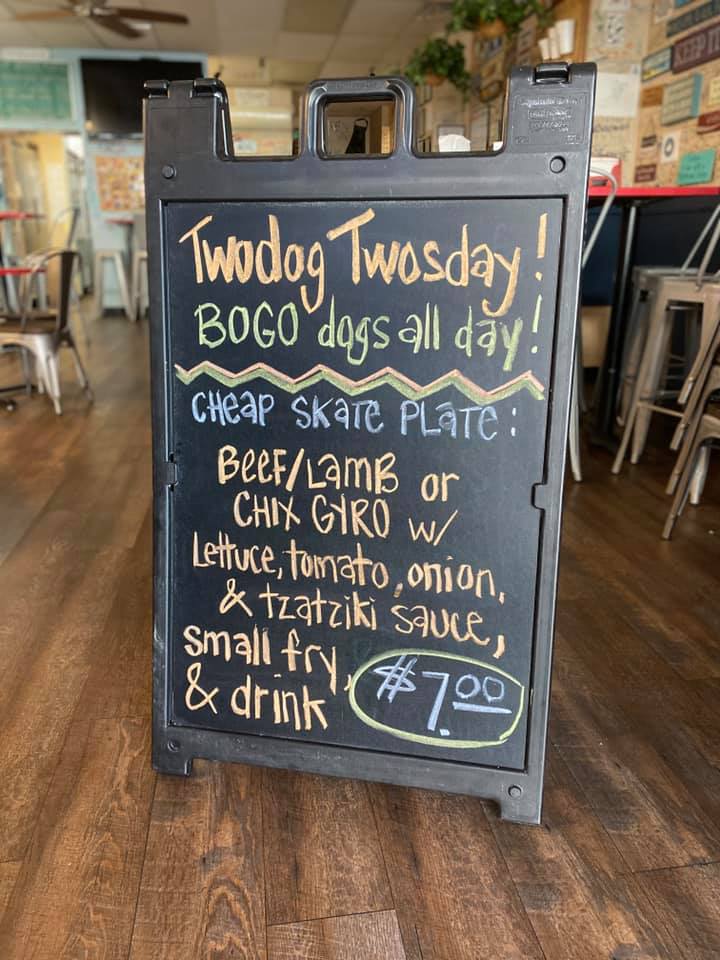 Twodog Twosday!
BOGO dogs all day!
CHeap SKaTe PLaTe:
Beef/LamB or
CHIX GYRO w/
Lettuce, tomato, onion,
& tzatziki sauce,
small fry,
& drink
$7.00
KEEP IT